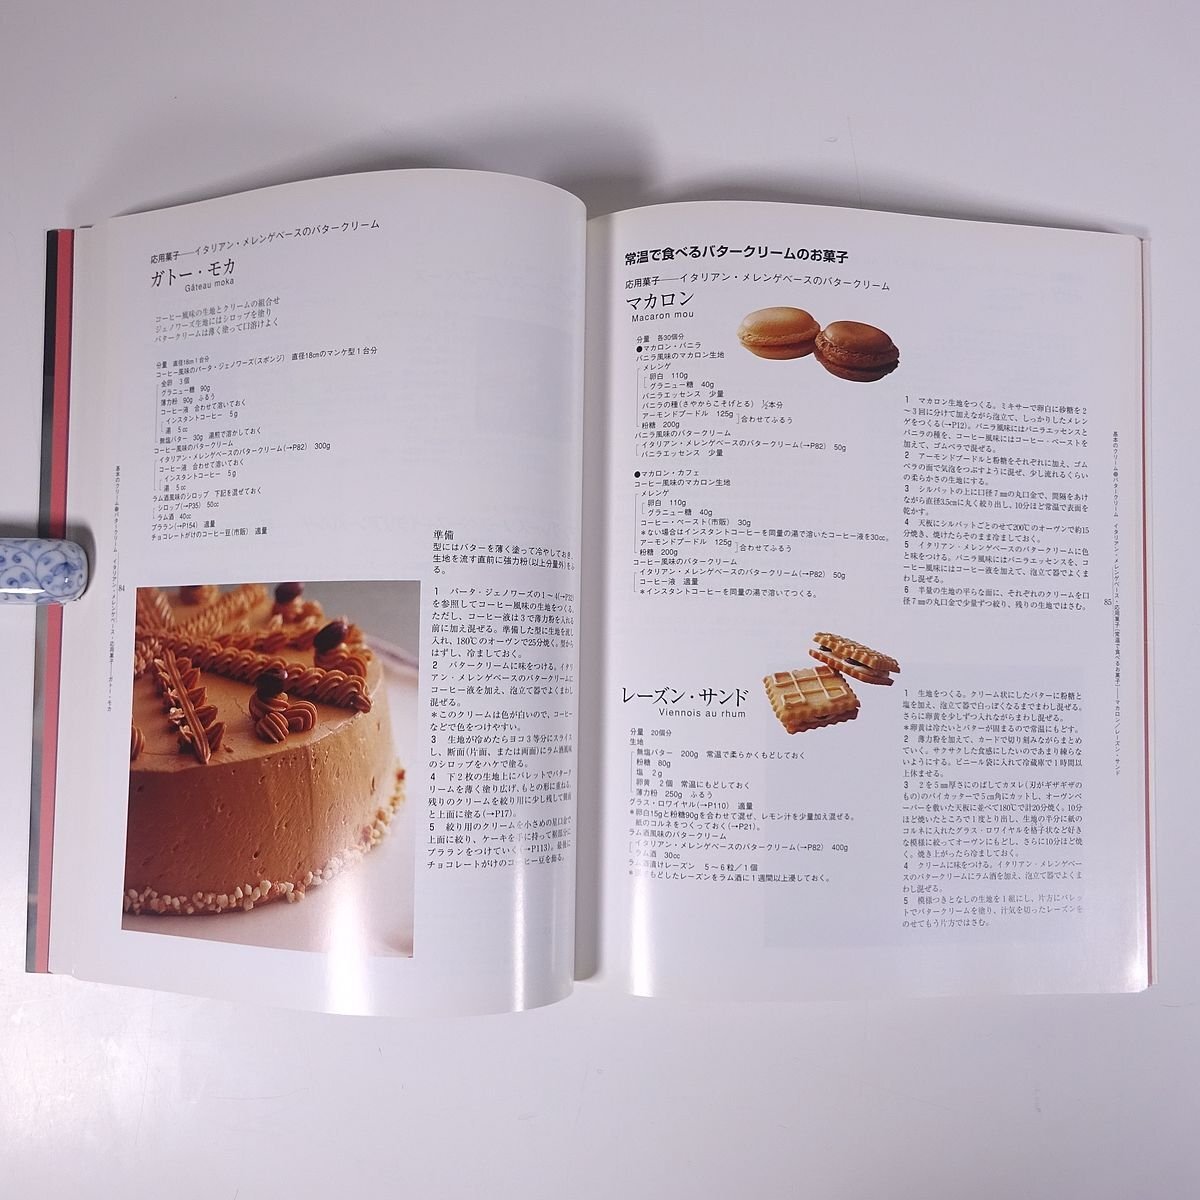 応用菓子──イタリアン・メレンゲベースのバタークリーム
ガトー・モカ
Gâteau moka
コーヒー風味の生地とクリームの組合せ
ジェノワーズ生地にはシロップを塗り
バタークリームは薄く塗って口溶けよく
分量　直径18cm1台分
コーヒー風味のバータ・ジェノワーズ(スポンジ)　直径18cmのマンケ型1台分
全卵　3個
グラニュー糖　90g
薄力粉　90g　ふるう
コーヒー液　合わせて溶いておく
インスタントコーヒー　5g
湯　5cc
無塩バター　30g　湯煎で溶かしておく
コーヒー風味のバタークリーム
イタリアン・メレンゲベースのバタークリーム(→P82)　300g
コーヒー液　合わせて溶いておく
インスタントコーヒー　5g
湯　5cc
ラム酒風味のシロップ　下記を混ぜておく
シロップ(→P35)　50cc
ラム酒　40cc
プララン(→P154)　適量
チョコレートがけのコーヒー豆(市販)　適量
準備
型にはバターを薄く塗って冷やしておき、
生地を流す直前に強力粉(以上分量外)をふ
る。
1　パータ・ジェノワーズの1〜4(→P32)
を参照してコーヒー風味の生地をつくる。
ただし、コーヒー液は3で薄力粉を入れる
前に加え混ぜる。準備した型に生地を流し
入れ、180℃のオーヴンで25分焼く。型から
はずし、冷ましておく。
2　バタークリームに味をつける。イタリ
アン・メレンゲベースのバタークリームに
コーヒー液を加え、泡立て器でよくまわし
混ぜる。
＊このクリームは色が白いので、コーヒー
などで色をつけやすい。
3　生地が冷めたらヨコ3等分にスライス
し、断面(片面、または両面)にラム酒風味
のシロップをハケで塗る。
4　下2枚の生地上にパレットでバターク
リームを薄く塗り広げ、もとの形に重ねる。
残りのクリームを絞り用に少し残して側面
と上面に塗る(→P17)。
5　絞り用のクリームを小さめの星口金で
上面に絞り、ケーキを手に持って裾部分に
プラランをつけていく(→P113)。最後に
チョコレートがけのコーヒー豆を飾る。
基本のクリーム❷バタークリーム　イタリアン・メレンゲベース・応用菓子──ガトー・モカ
84
常温で食べるバタークリームのお菓子
応用菓子──イタリアン・メレンゲベースのバタークリーム
マカロン
Macaron mou
分量　各30個分
●マカロン・バニラ
バニラ風味のマカロン生地
メレンゲ
卵白　110g
グラニュー糖　40g
バニラエッセンス　少量
バニラの種(さやからこそげとる)　½本分
アーモンドプードル　125g
粉糖　200g
合わせてふるう
バニラ風味のバタークリーム
イタリアン・メレンゲベースのバタークリーム(→P82)　50g
バニラエッセンス　少量
●マカロン・カフェ
コーヒー風味のマカロン生地
メレンゲ
卵白　110g
グラニュー糖　40g
コーヒー・ペースト(市販)　30g
＊ない場合はインスタントコーヒーを同量の湯で溶いたコーヒー液を30cc。
アーモンドプードル　125g
粉糖　200g
合わせてふるう
コーヒー風味のバタークリーム
イタリアン・メレンゲベースのバタークリーム(→P82)　50g
コーヒー液　適量
＊インスタントコーヒーを同量の湯で溶いてつくる。
1　マカロン生地をつくる。ミキサーで卵白に砂糖を2
〜3回に分けて加えながら泡立て、しっかりしたメレン
ゲをつくる(→P12)。バニラ風味にはバニラエッセンスと
バニラの種、コーヒー風味にはコーヒー・ペーストを
加えて、ゴムベラで混ぜる。
2　アーモンドプードルと粉糖をそれぞれに加え、ゴム
ベラの面で気泡をつぶすように混ぜ、少し流れるくらい
の柔らかさの生地にする。
3　シルパットの上に口径7㎜の丸口金で、間隔をあけ
ながら直径3.5cmに丸く絞り出し、10分ほど常温で表面を
乾かす。
4　天板にシルパットごとのせて200℃のオーヴンで約15
分焼き、焼けたらそのまま冷ましておく。
5　イタリアン・メレンゲベースのバタークリームに色
と味をつける。バニラ風味にはバニラエッセンスを、コ
ーヒー風味にはコーヒー液を加えて、泡立て器でよくま
わし混ぜる。
6　半量の生地の平らな面に、それぞれのクリームを口
径7㎜の丸口金で少量ずつ絞り、残りの生地ではさむ。
レーズン・サンド
Viennois au rhum
分量　20個分
生地
無塩バター　200g　常温で柔らかくもどしておく
粉糖　80g
塩　2g
卵黄　2個　常温にもどしておく
薄力粉　250g　ふるう
グラス・ロワイヤル(→P110)　適量
＊卵白15gと粉糖90gを合わせて混ぜ、レモン汁を少量加え混ぜる。
紙のコルネをつくっておく(→P21)。
ラム酒風味のバタークリーム
イタリアン・メレンゲベースのバタークリーム(→P82)　400g
ラム酒　30cc
ラム酒漬けレーズン　5〜6粒／1個
もどしたレーズンをラム酒に1週間以上浸しておく。
1　生地をつくる。クリーム状にしたバターに粉糖と
塩を加え、泡立て器で白っぽくなるまでまわし混ぜる。
さらに卵黄を少しずつ入れながらまわし混ぜる。
＊卵黄は冷たいとバターが固まるので常温にもどす。
2　薄力粉を加えて、カードで切り刻みながらまとめ
ていく。サクサクした食感にしたいのであまり練らな
いようにする。ビニール袋に入れて冷蔵庫で1時間以
上休ませる。
3　2を5㎜厚さにのばしてカヌレ(刃がギザギザの
もの)のパイカッターで5㎝角にカットし、オーヴンペ
ーパーを敷いた天板に並べて180℃で計20分焼く。10分
ほど焼いたところで1度とり出し、生地の半分に紙の
コルネに入れたグラス・ロワイヤルを格子状など好き
な模様に絞ってオーヴンにもどし、さらに10分ほど焼
く。焼き上がったら冷ましておく。
4　クリームに味をつける。イタリアン・メレンゲベー
スのバタークリームにラム酒を加え、泡立て器でよくま
わし混ぜる。
5　模様つきとなしの生地を1組にし、片方にパレッ
トでバタークリームを塗り、汁気を切ったレーズンを
のせてもう片方ではさむ。
基本のクリーム❷バタークリーム　イタリアン・メレンゲベース・応用菓子[常温で食べるお菓子]──マカロン／レーズン・サンド
85